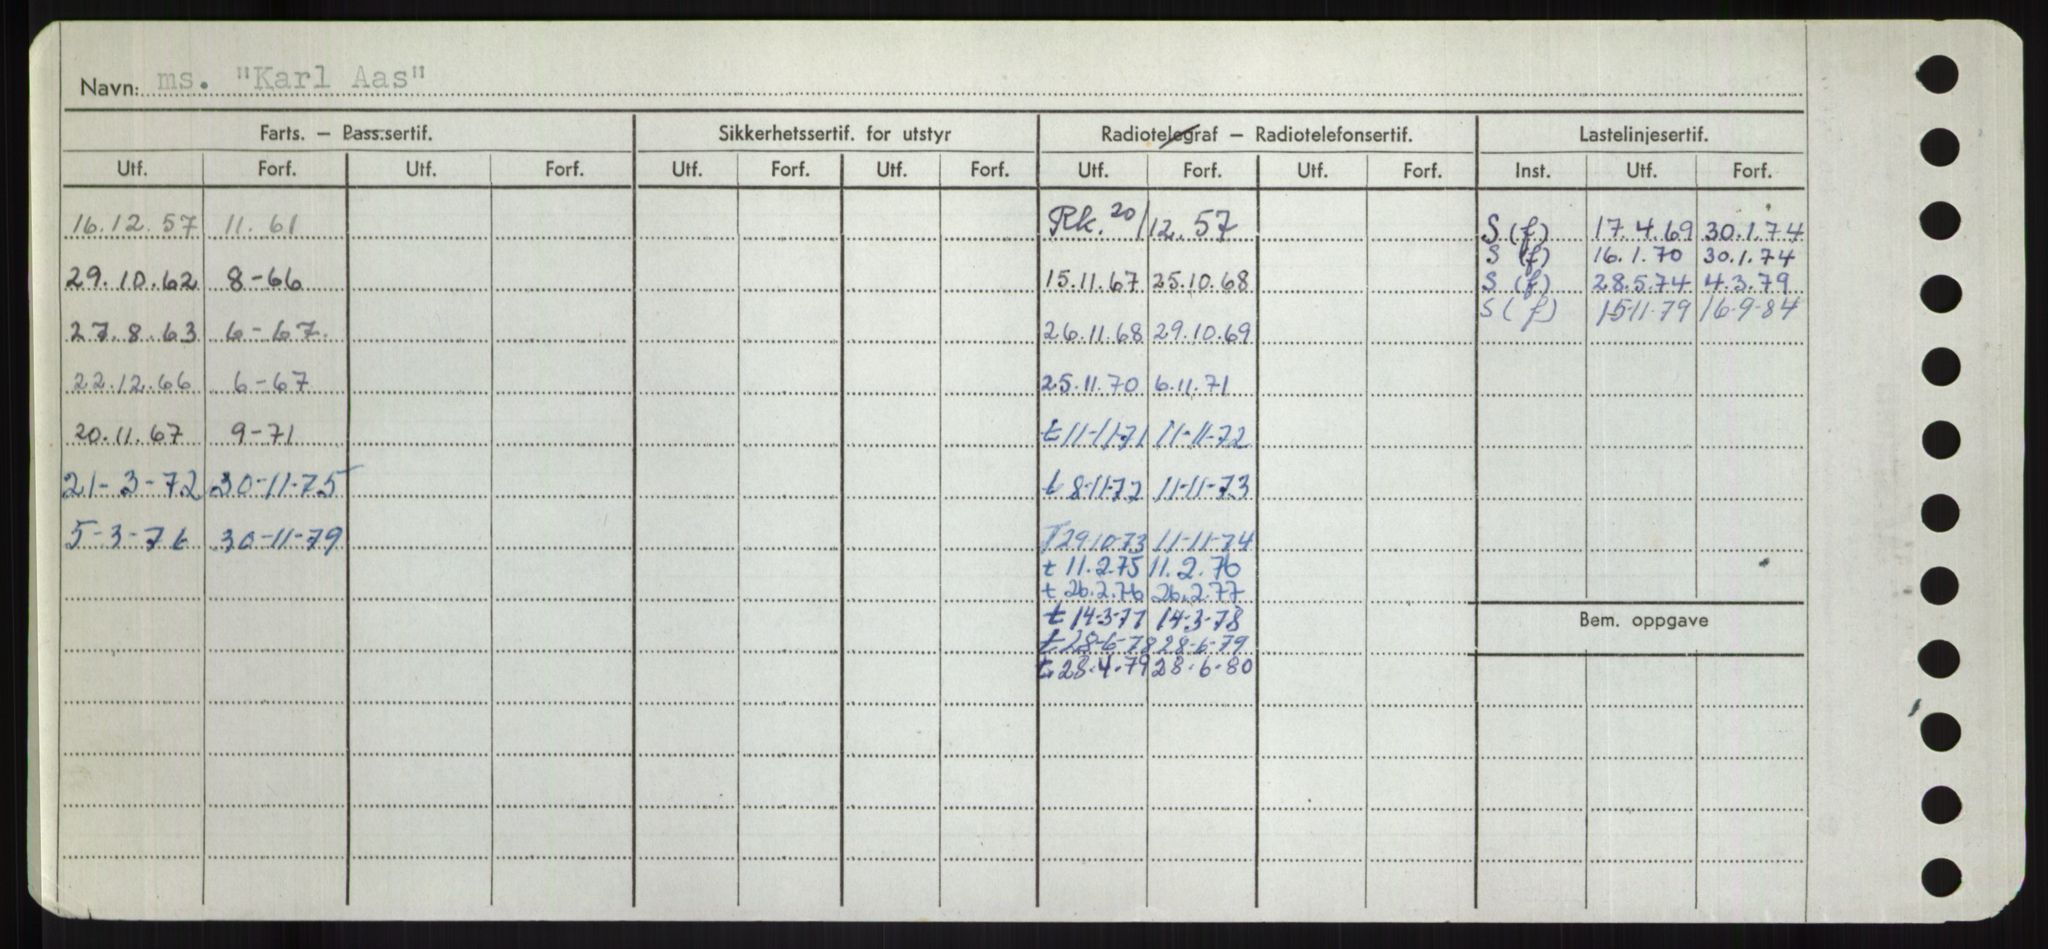 Navn: ms. "Karl Aas"
Farts. – Pass.sertif. Sikkerhetssertif. for utstyr Radiotelegraf – Radiotelefonsertif. Lastelinjesertif.
Utf. Forf. Utf. Forf. Utf. Forf. Utf. Forf. Utf. Forf. Utf. Forf. Inst. Utf. Forf.
16.12.57 11.61 Rk. 20/12.57 S (f) 17.4.69 30.1.74
S (f) 16.1.70 30.1.74
29.10.62 8-66 15.11.67 25.10.68 S (f) 28.5.74 4.3.79
S (f) 15-11-79 16-9-84
27.8.63 6-67. 26.11.68 29.10.69
22.12.66 6-67 25.11.70 6.11.71
20.11.67 9-71 t 11-11-71 11-11-72
21-3-72 30-11-75 t 8-11-72 11-11-73
5-3-76 30-11-79 T 29-10-73 11-11-74
t 11.2.75 11.2.76
t 26.2.76 26.2.77
t 14-3-77 14-3-78
Bem. oppgave
t 28-6-78 28-6-79
t 28.4.79 28-6-80